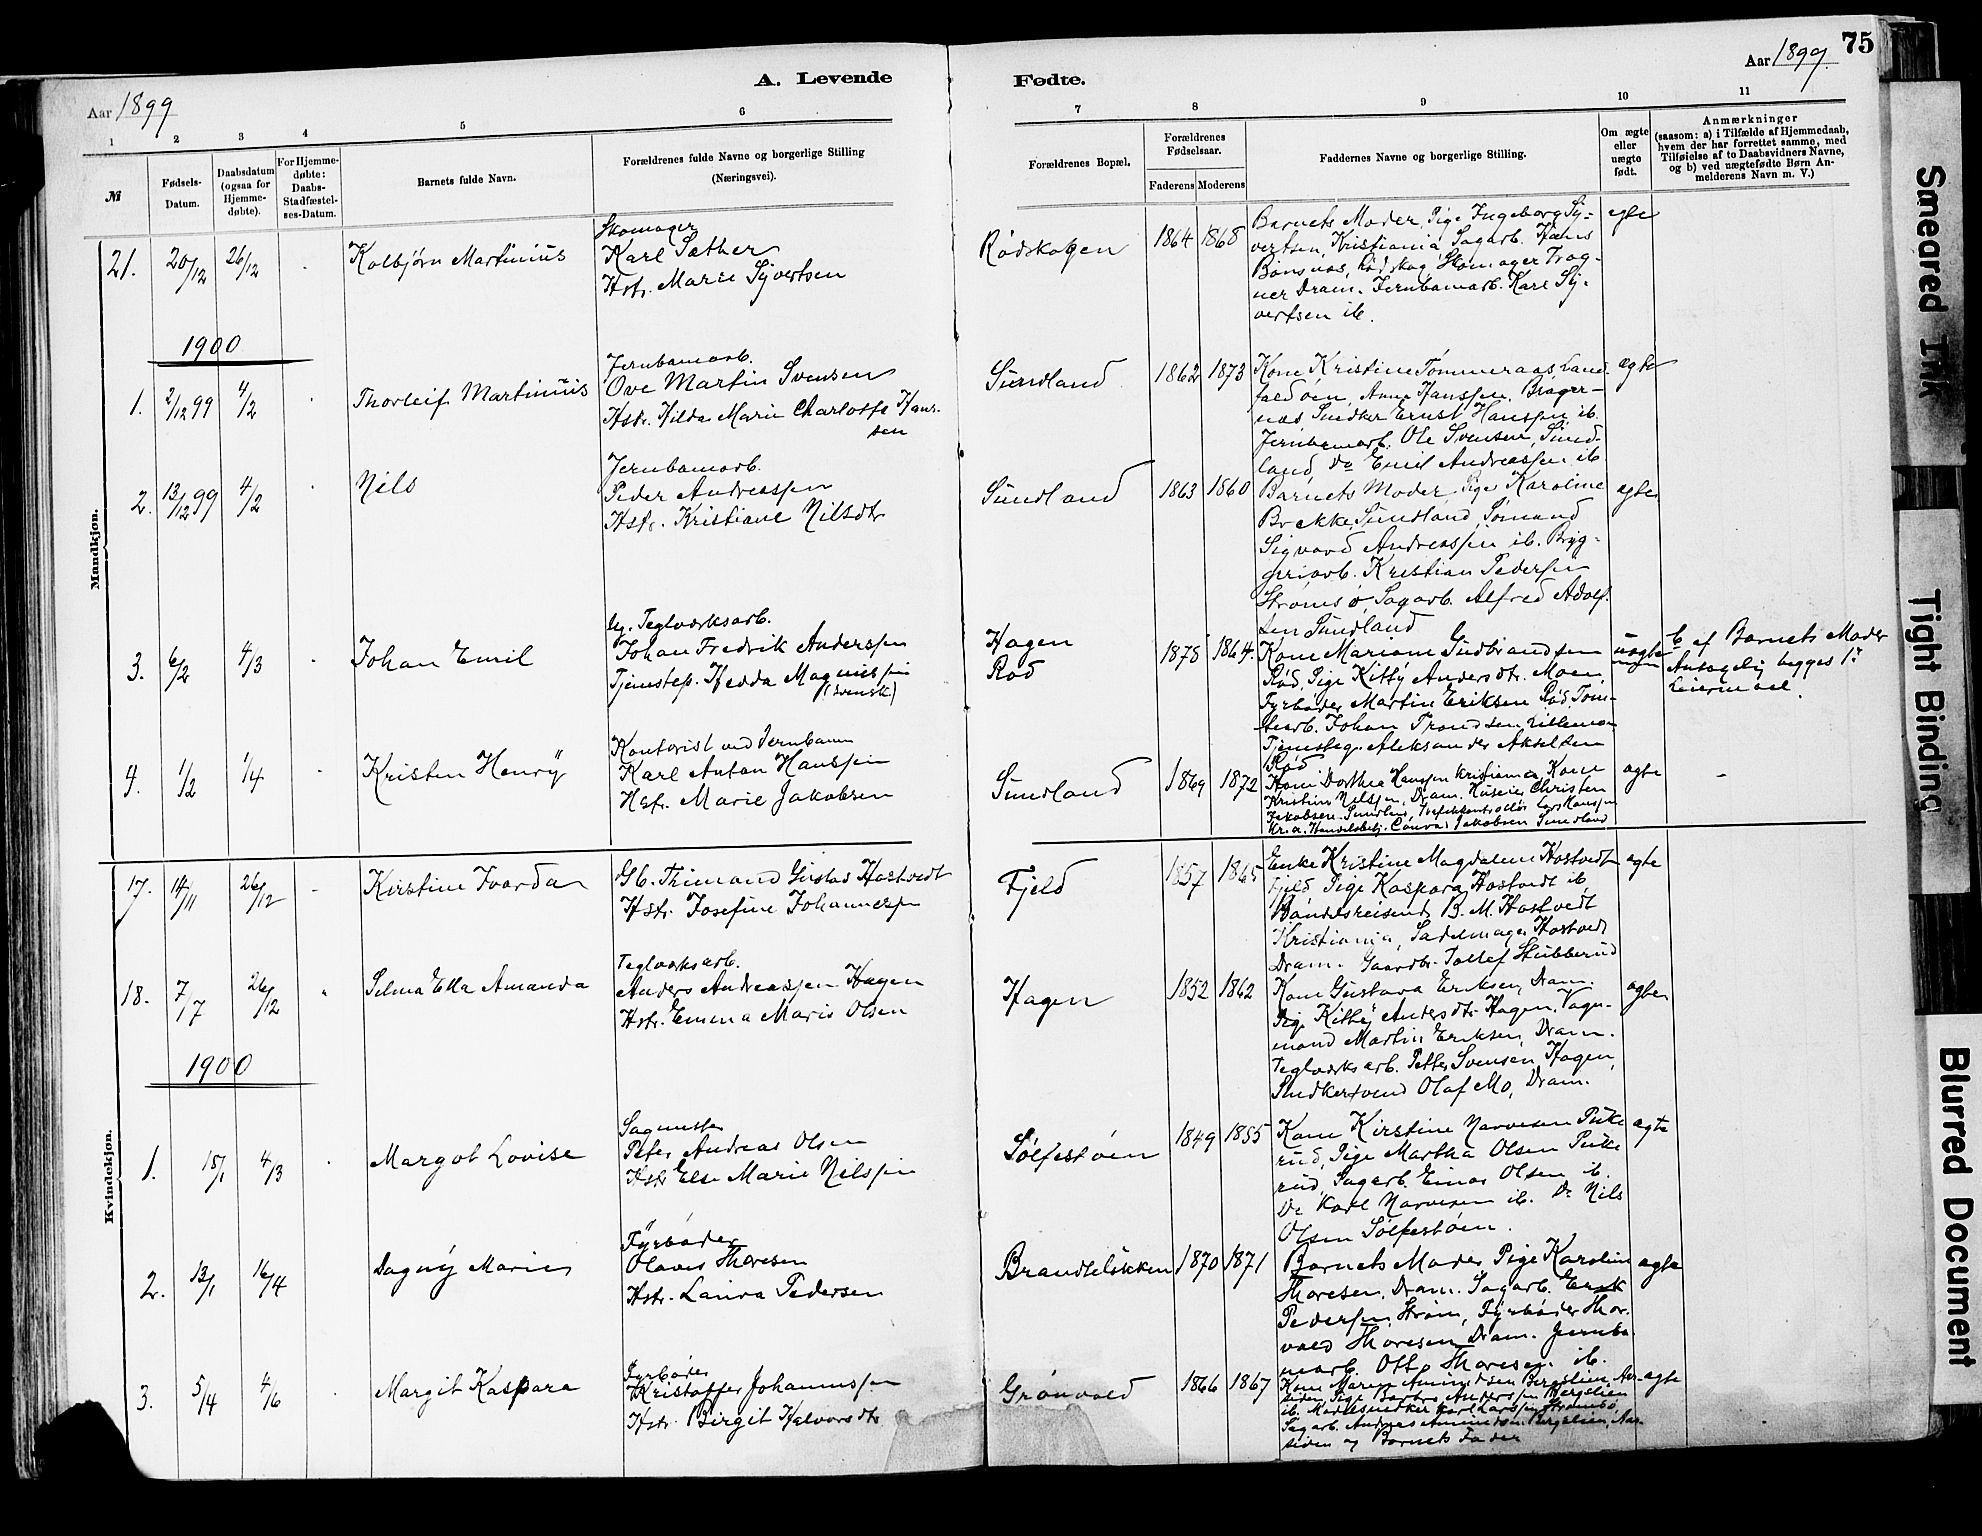 75
A. Levende Fødte.
Aar 1899
Aar 1899.
1 2 3 4 5 6 7 8 9 10 11
№
Fødsels-Datum.
Daabsdatum (ogsaa for Hjemme-døbte).
For Hjemme-døbte: Daabs-Stadfæstel-ses-Datum.
Barnets fulde Navn.
Forældrenes fulde Navne og borgerlige Stilling
(Næringsvei).
Forældrenes Bopæl.
Forældrenes Fødselsaar.
Faderens Moderens
Faddernes Navne og borgerlige Stilling.
Om ægte eller uægte født.
Anmærkninger
(saasom: a) i Tilfælde af Hjemmedaab,
hvem der har forrettet samme, med
Tilføielse af to Daabsvidners Navne,
og b) ved uægtefødte Børn An-
melderens Navn m. V.)
Mandkjøn.
21. 20/12 26/12 Kolbjørn Martinius
Skomager
Karl Sæther
Hstr. Marie Syvertsen
Rødskogen 1864 1868
Barnets Moder, Pige Ingeborg Sy-
vertsen, Kristiania Sagarb. Hans
Bønsnæs, Rødskog, Skomager Trog-
ner Dram. Jernbanarb. Karl Sy-
vertsen ib.
ægte
1900
1. 2/12 99 4/2 Thorleif Martinius
Jernbanarb.
Ove Martin Svensen
Hstr. Hilda Marie Charlotte Han-
sen
Sundland 1862 1873
Kone Kristine Tømmeraas Land-
faldøen, Anna Hanssen, Brager-
næs, Snedker Ernst Hanssen ib.
Jernbanarb. Ole Svensen, Sund-
land, Do Emil Andreassen ib.
ægte
2. 13/12 99 4/2 Nils
Jernbanarb.
Peder Andreassen
Hstr. Kristiane Nilsdtr
Sundland 1863 1860
Barnets Moder, Pige Karoline
Brekke, Sundland, Sømand
Sigvard Andreassen ib. Bryg-
geriarb. Kristian Pedersen
Strømsø, Sagarb. Alfred Adolf-
sen Sundland
ægte
3. 6/2 4/3 Johan Emil
Ug. Teglværksarb.
Johan Fredrik Anderssen
Tjenestep. Hedda Magnussen
(svensk)
Hagen
Rød
1875 1864
Kone Mariane Gudbrandsen
Rød, Pige Kitty Andersdtr. Moen,
Fyrbøder Martin Eriksen Rød Tom-
tearb. Johan Trondsen Lillemo
Tjenestegr. Aleksander Akselsen
Rød
uægte
b af Barnets Moder
Antagelig begges 1ste
Leiermaal.
4. 1/2 1/4 Kristen Henry
Kontorist ved Jernbanen
Karl Anton Hanssen
Hstr. Marie Jakobsen
Sundland 1869 1872
Kone Dorthea Hanssen Kristiania, Kone
Kristine Nilssen, Dram. Huseier Christen
Jakobsen Sundland, Lars Hanssen
Kr.a. Handelsbetj. Conrad Jakobsen Sundland
ægte
Kvindekjøn.
17. 14/11 26/12 Kirstine Ivarda
Gb. Thimand Gustav Hostvedt
Hstr. Josefine Johannessen
Fjeld 1857 1865
Enke Kristine Magdalene Hostvedt
Fjeld, Pige Kaspara Hostvedt ib.
Handelsreisende B. M. Hostvedt
Kristiania, Sadelmager Hostvedt
Dram. Gaardbr. Tollef Stubberud
ægte
18. 7/7 26/12 Selma Ella Amanda
Teglværksarb.
Anders Andreassen Hagen
Hstr. Emma Marie Olsen
Hagen 1852 1862
Kone Gustava Eriksen, Dram.
Pige Kitty Andersdtr. Hagen, Vogn-
mand Martin Eriksen, Dram.
Teglværksarb. Petter Svensen, Hagen,
Snedkersvend Olaf Mo, Dram.
ægte
1900
1. 15/1 4/3 Margot Lovise
Sagmester
Peter Andreas Olsen
Hstr Else Marie Nilssen
Sølfestøen 1849 1855
Kone Kirstine Narvesen Puke-
rud, Pige Martha Olsen Puke-
rud, Sagarb. Einar Olsen ib.
Do Karl Narvesen ib. Do Nils
Olsen Sølfestøen.
ægte
2. 13/1 16/4 Dagny Marie
Fyrbøder
Olaves Thoresen
Hstr. Laura Pedersen
Brandteløkken 1870 1871
Barnets Moder, Pige Karoline
Thoresen, Dram. Sagarb. Erik
Pedersen, Strøm, Fyrbøder Thor-
vald Thoresen Dram. Jernba-
nearb. Otto Thoresen ib.
ægte
3. 5/4 4/6 Margit Kaspara
Fyrbøder
Kristoffer Johannessen
Hstr. Birgit Halvorsdtr
Grønvold 1866 1867
Kone Maren Amundsen Bergslien, Aa-
siden, Pige Anderssen Bergslien
ib. Modelsnedker Karl Larssen Strømsø,
Sagarb. Andreas Amundsen Bergslien, Aa-
siden og Barnets Fader
ægte
Smeared Ink
Tight Binding
Blurred Document